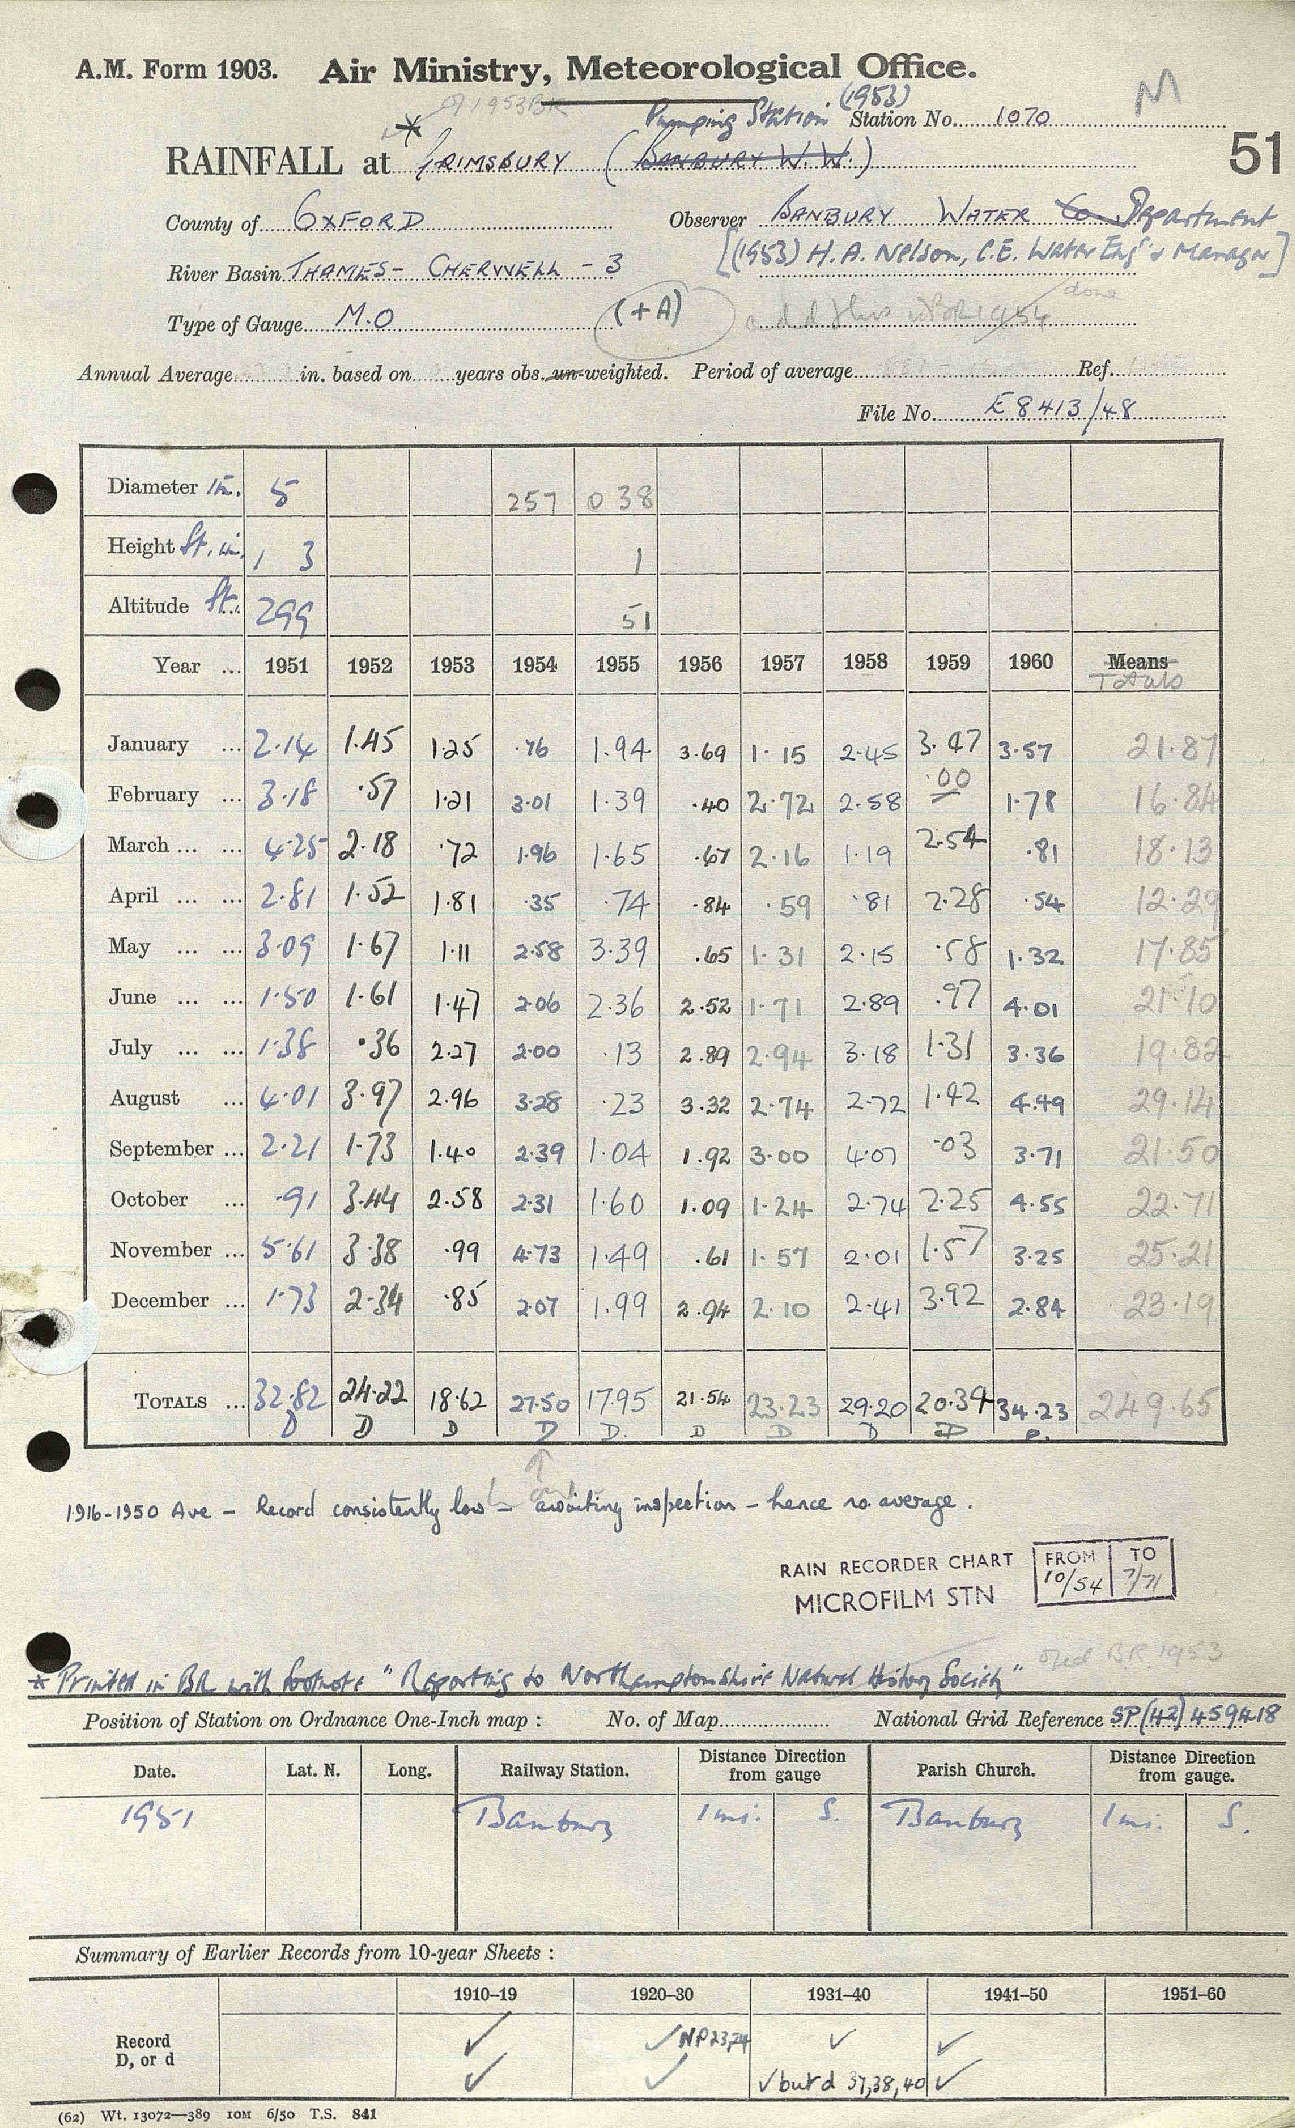 A.M. Form 1903. Air Ministry, Meteorological Office.
Pumping Station (1953) Station No. 1070 M
RAINFALL at * GRIMSBURY (BANBURY W.W.) 51
County of OXFORD Observer BANBURY WATER Co. Department
[(1953) H.A. Nelson, C.E. Water Engr & Manager]
River Basin THAMES - CHERWELL - 3
Type of Gauge M.O (+A) done
Annual Average in. based on years obs. un-weighted. Period of average Ref.
File No. E8413/48
Diameter in. 5 257 0 38
Height ft. in. 1 3 1
Altitude ft. 299 51
Year ... 1951 1952 1953 1954 1955 1956 1957 1958 1959 1960 Means Totals
January ... 2.14 1.45 1.25 .76 1.94 3.69 1.15 2.45 3.47 3.57 21.87
February ... 3.18 .57 1.21 3.01 1.39 .40 2.72 2.58 .00 1.78 16.84
March ... ... 4.25 2.18 .72 1.96 1.65 .67 2.16 1.19 2.54 .81 18.13
April ... ... 2.81 1.52 1.81 .35 .74 .84 .59 .81 2.28 .54 12.29
May ... ... 3.09 1.67 1.11 2.58 3.39 .65 1.31 2.15 .58 1.32 17.85
June ... ... 1.50 1.61 1.47 2.06 2.36 2.52 1.71 2.89 .97 4.01 21.10
July ... ... 1.38 .36 2.27 2.00 .13 2.89 2.94 3.18 1.31 3.36 19.82
August ... 4.01 3.97 2.96 3.28 .23 3.32 2.74 2.72 1.42 4.49 29.14
September ... 2.21 1.73 1.40 2.39 1.04 1.92 3.00 4.07 .03 3.71 21.50
October ... .91 3.44 2.58 2.31 1.60 1.09 1.24 2.74 2.25 4.55 22.71
November ... 5.61 3.38 .99 4.73 1.49 .61 1.57 2.01 1.57 3.25 25.21
December ... 1.73 2.34 .85 2.07 1.99 2.94 2.10 2.41 3.92 2.84 23.19
TOTALS ... 32.82 24.22 18.62 27.50 17.95 21.54 23.23 29.20 20.34 34.23 249.65
D D D D D. D D D D D.
1916-1950 Ave - Record consistently low - awaiting inspection - hence no average.
RAIN RECORDER CHART FROM TO
MICROFILM STN 10/54 7/71
BR 1953
* Printed in BR with footnote "Reporting to Northamptonshire Natural History Society"
Position of Station on Ordnance One-Inch map : No. of Map National Grid Reference SP(42)459418
Date. Lat. N. Long. Railway Station. Distance Direction from gauge Parish Church. Distance Direction from gauge.
1951 Banbury 1 mi. S. Banbury 1 mi. S.
Summary of Earlier Records from 10-year Sheets :
1910-19 1920-30 1931-40 1941-50 1951-60
Record ✓ ✓ NP 23,24 ✓ ✓
D, or d ✓ ✓ ✓ but d 37,38,40 ✓
(62) Wt. 13072—389 10M 6/50 T.S. 841